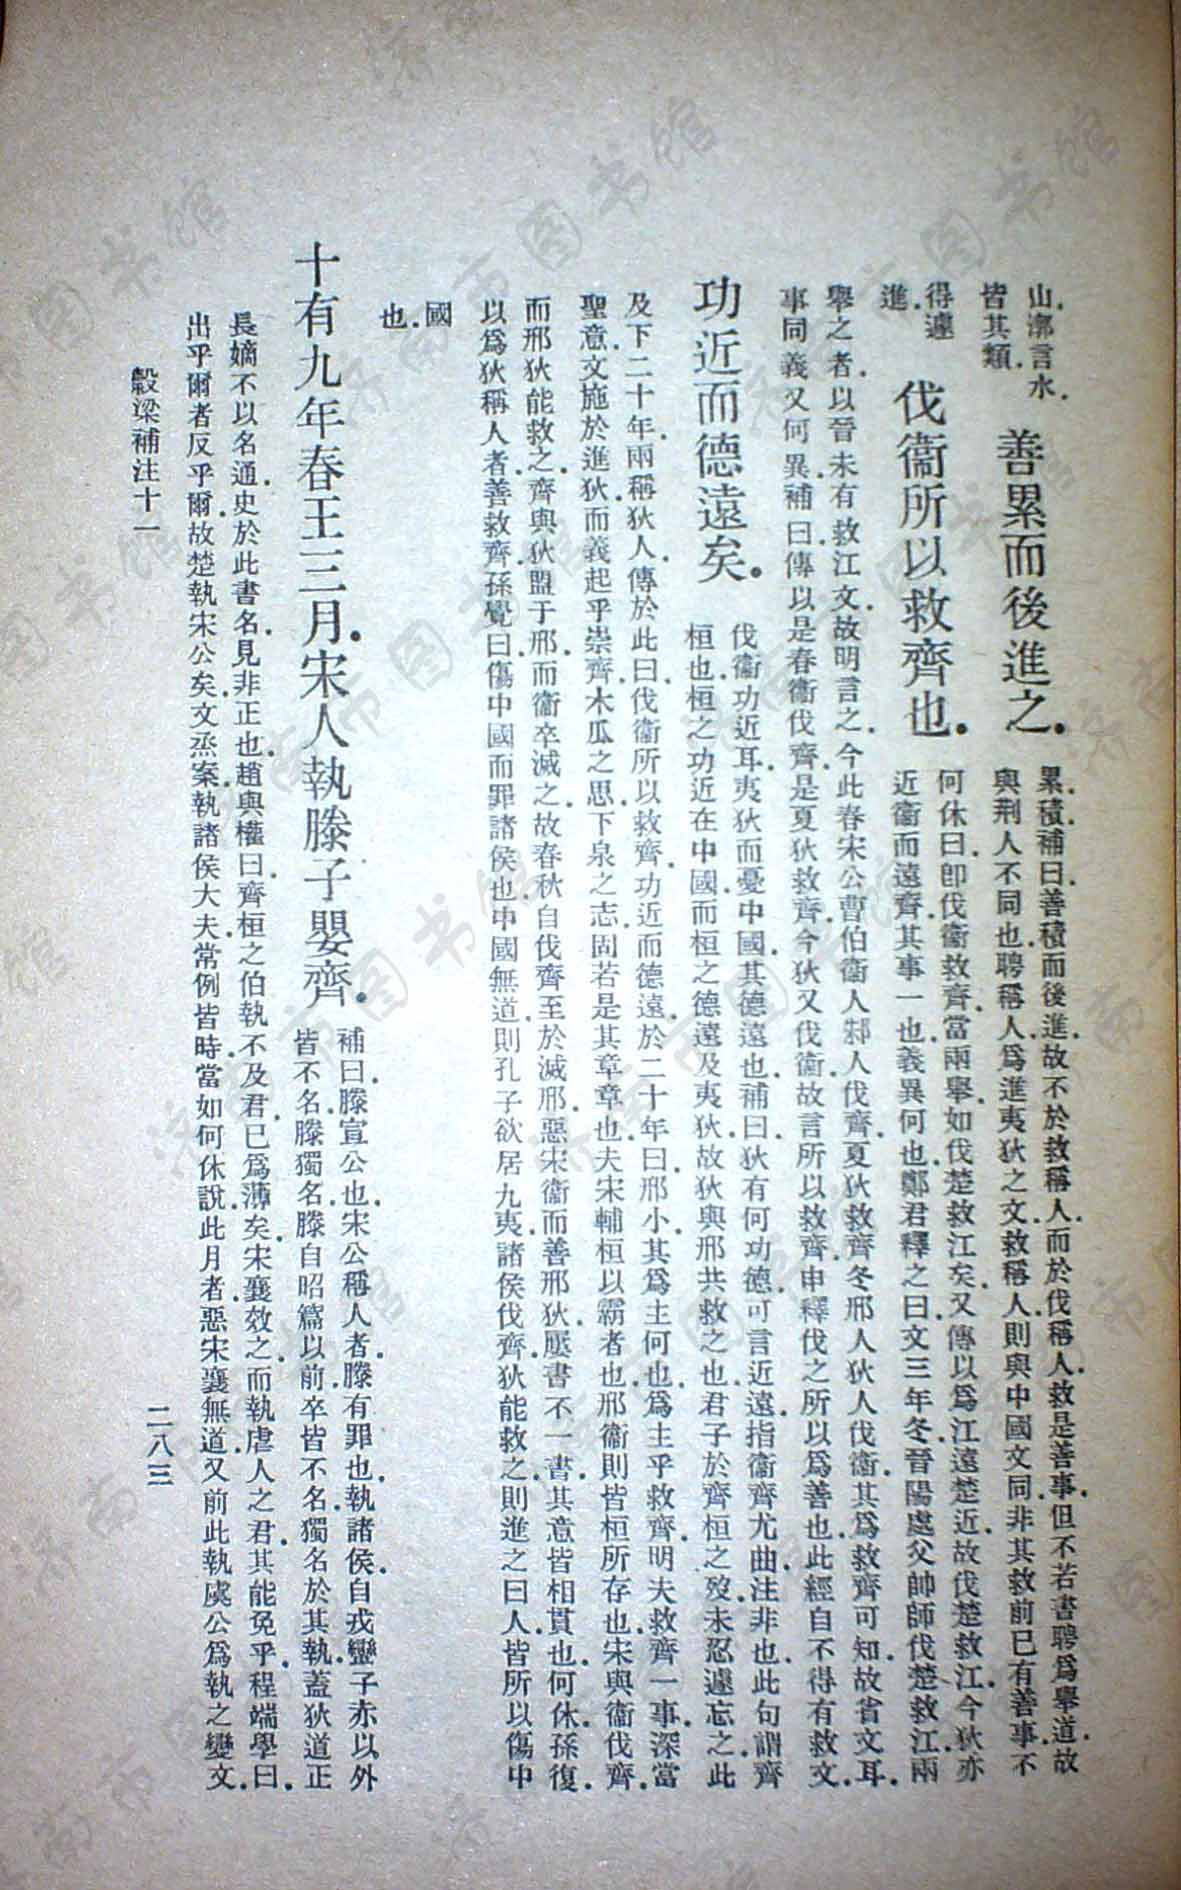 山.漷言水.
皆其類.
善累而後進之.
累.積.補曰.善積而後進.故不於救稱人.而於伐稱人.救是善事.但不若書聘爲舉道.故
與荆人不同也.聘稱人.爲進夷狄之文.救稱人.則與中國文同.非其救前已有善事.不
得遽
進.
伐衞所以救齊也.
何休曰.卽伐衞救齊.當兩舉.如伐楚救江矣.又傳以爲江遠楚近.故伐楚救江.今狄亦
近衞而遠齊.其事一也.義異何也.鄭君釋之曰.文三年冬.晉陽處父帥師伐楚救江.兩
舉之者.以晉未有救江文.故明言之.今此春宋公曹伯衞人邾人伐齊.夏狄救齊.冬邢人狄人伐衞.其爲救齊可知.故省文耳.
事同義又何異.補曰.傳以是春衞伐齊.是夏狄救齊.今狄又伐衞.故言所以救齊.申釋伐之所以爲善也.此經自不得有救文.
功近而德遠矣.
伐衞功近耳.夷狄而憂中國.其德遠也.補曰.狄有何功德可言.近遠指衞齊尤曲.注非也.此句謂齊
桓也.桓之功近在中國.而桓之德遠及夷狄.故狄與邢共救之也.君子於齊桓之歿.未忍遽忘之.此
及下二十年.兩稱狄人.傳於此曰.伐衞所以救齊.功近而德遠.於二十年曰.邢小.其爲主何也.爲主乎救齊.明夫救齊一事.深當
聖意.文施於進狄.而義起乎崇齊.木瓜之思.下泉之志.固若是其章章也.夫宋輔桓以霸者也.邢衞則皆桓所存也.宋與衞伐齊.
而邢狄能救之.齊與狄盟于邢.而衞卒滅之.故春秋自伐齊至於滅邢.惡宋衞而善邢狄.屢書不一書.其意皆相貫也.何休孫復
以爲狄稱人者.善救齊.孫覺曰.傷中國而罪諸侯也.中國無道.則孔子欲居九夷.諸侯伐齊.狄能救之.則進之曰人.皆所以傷中
國
也.
十有九年春王三月.宋人執滕子嬰齊.
補曰.滕宣公也.宋公稱人者.滕有罪也.執諸侯自戎蠻子赤以外
皆不名.滕獨名.滕自昭篇以前.卒皆不名.獨名於其執.蓋狄道正
長嫡不以名通.史於此書名.見非正也.趙與權曰.齊桓之伯.執不及君.已爲薄矣.宋襄效之.而執虐人之君.其能免乎.程端學曰.
出乎爾者反乎爾.故楚執宋公矣.文烝案.執諸侯大夫.常例皆時.當如何休說.此月者.惡宋襄無道.又前此執虞公.爲執之變文.
穀梁補注十一
二八三